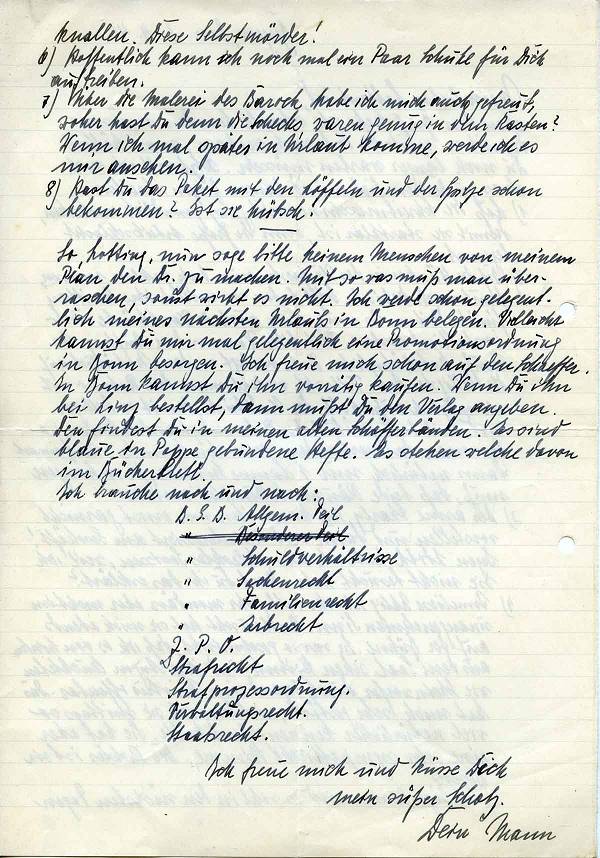 knallen. Diese Selbstmörder!
6) Hoffentlich kann ich noch mal ein Paar Schuhe für Dich
auftreiben.
7) Über die Malerei des Barock habe ich mich auch gefreut,
woher hast Du denn die Schecks, waren genug in dem Kasten?
Wenn ich mal später in Urlaub komme, werde ich es
mir ansehen.
8) Hast Du das Paket mit den Löffeln und der Spitze schon
bekommen? Ist sie hübsch?
So, nun sage bitte keinem Menschen von meinem
Plan den Dr. zu machen. Mit so was muß man über-
raschen, sonst wirkt es nicht. Ich werde schon gelegent-
lich meines nächsten Urlaubs in Bonn belegen. Vielleicht
kannst Du mir mal gelegentlich eine Promotionsordnung
in Bonn besorgen. Ich freue mich schon auf den Schaeffer.
In Bonn kannst Du ihn vorrätig kaufen. Wenn Du ihn
bei bestellst, dann mußt Du den Verlag angeben.
Den findest Du in meinen alten Schäfferbänden. Es sind
blaue in Pappe gebundene Hefte. Es stehen welche davon
im Bücherbrett.
Ich brauche nach und nach:
B. G. B. Allgem. Teil
" Besonderer Teil
" Schuldverhältnisse
" Sachenrecht
" Familienrecht
" Erbrecht
Z. P. O.
Strafrecht
Strafprozessordnung.
Verwaltungsrecht.
Staatsrecht.
Ich freue mich und küsse Dich
mein süßer Schatz.
Dein Mann